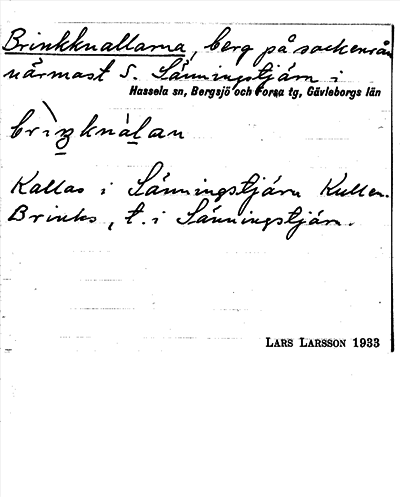 Brinkknallarna, berg på sockenrån
närmast S. Sänningstjärn i
Hassela sn, Bergsjö och Forsa tg, Gävleborgs län
brìŋknálan
Kallas i Sänningstjärn Kullen.
Brinks, t. i Sänningstjärn.
LARS LARSSON 1933